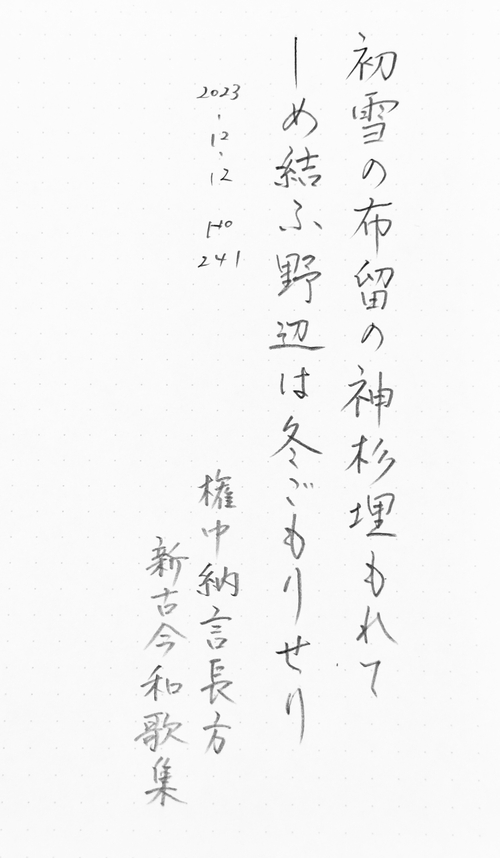 初雪の布留の神杉埋もれて
しめ結ふ野辺は冬ごもりせり
2023
・
12
・
12
No
241
権中納言長方
新古今和歌集